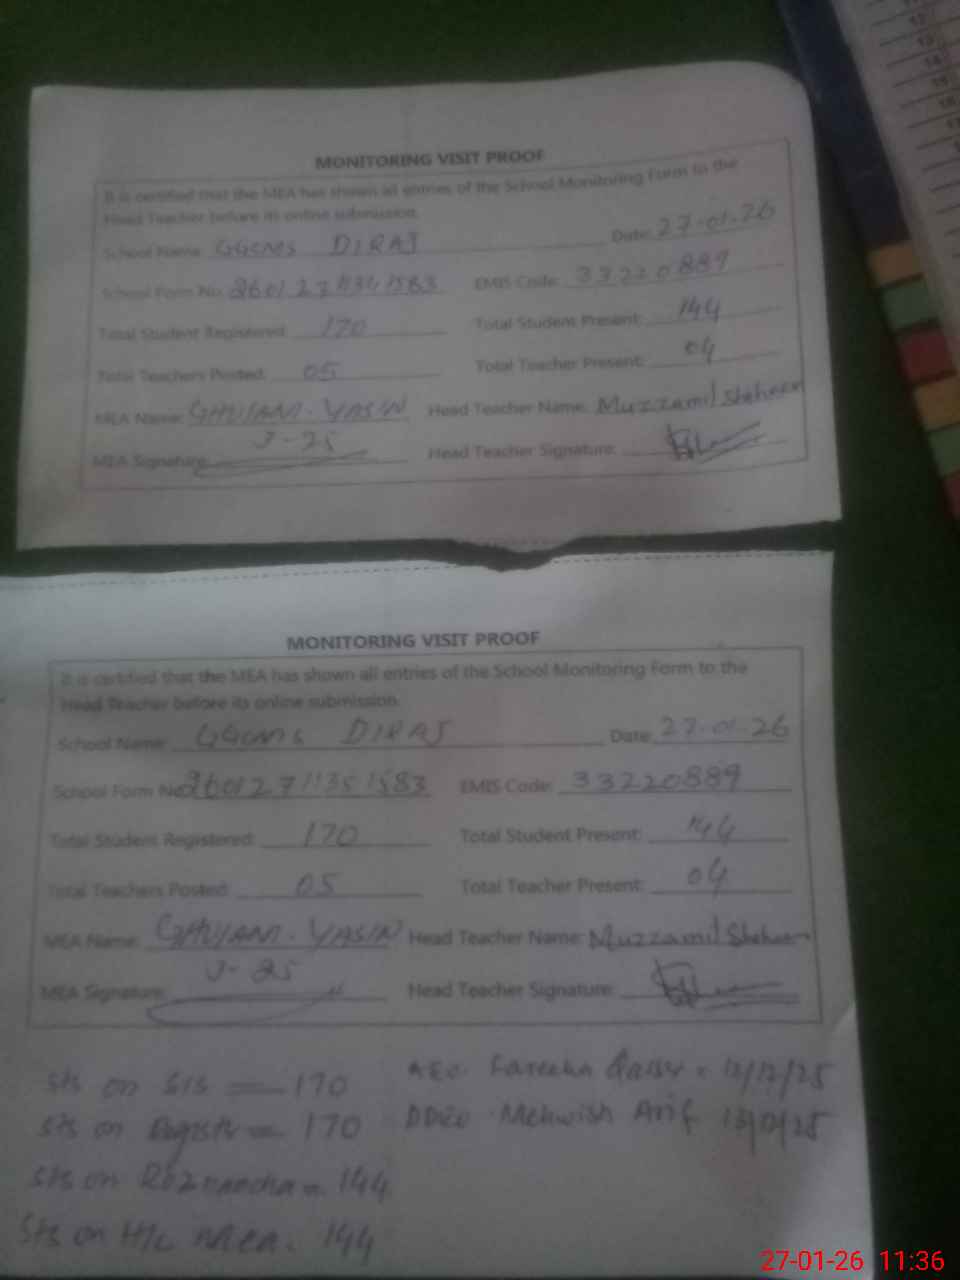 MONITORING VISIT PROOF
It is certified that the MEA has shown all entries of the School Monitoring Form to the
Head Teacher before its online submission.
School Name: GGCMS DIRAJ Date: 27-01-26
School Form No: EMIS Code: 33220889
Total Student Registered: 170 Total Student Present: 144
Total Teachers Posted: 05 Total Teacher Present: 04
MEA Name: GHULAM. YASIN Head Teacher Name: Muzzamil Shaheen
MEA Signature: Head Teacher Signature:
MONITORING VISIT PROOF
It is certified that the MEA has shown all entries of the School Monitoring Form to the
Head Teacher before its online submission.
School Name: GGCMS DIRAJ Date: 27-01-26
School Form No: EMIS Code: 33220889
Total Student Registered: 170 Total Student Present: 144
Total Teachers Posted: 05 Total Teacher Present: 04
MEA Name: GHULAM. YASIN Head Teacher Name: Muzzamil Shaheen
MEA Signature: Head Teacher Signature:
sts on SIS = 170 AEO. Fareeha
sts on = 170 DDEO Mehwish Arif
sts on = 144
Sts on H/C MEA. 144
27-01-26 11:36